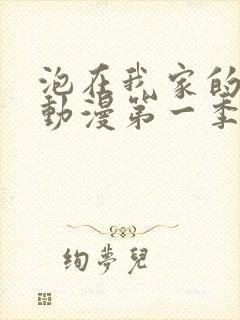 泡在我家的
動漫第一季
絢夢兒